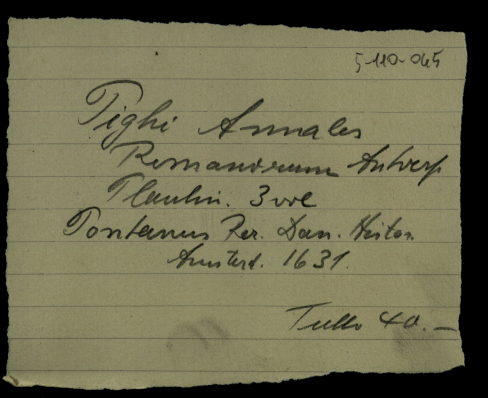 5-110-045
Pighi Annales
Romanorum Antverp
Plantin. 3 vol
Pontanus Rer. Dan. Histor.
Amsterd. 1631.
Tullb 40.—